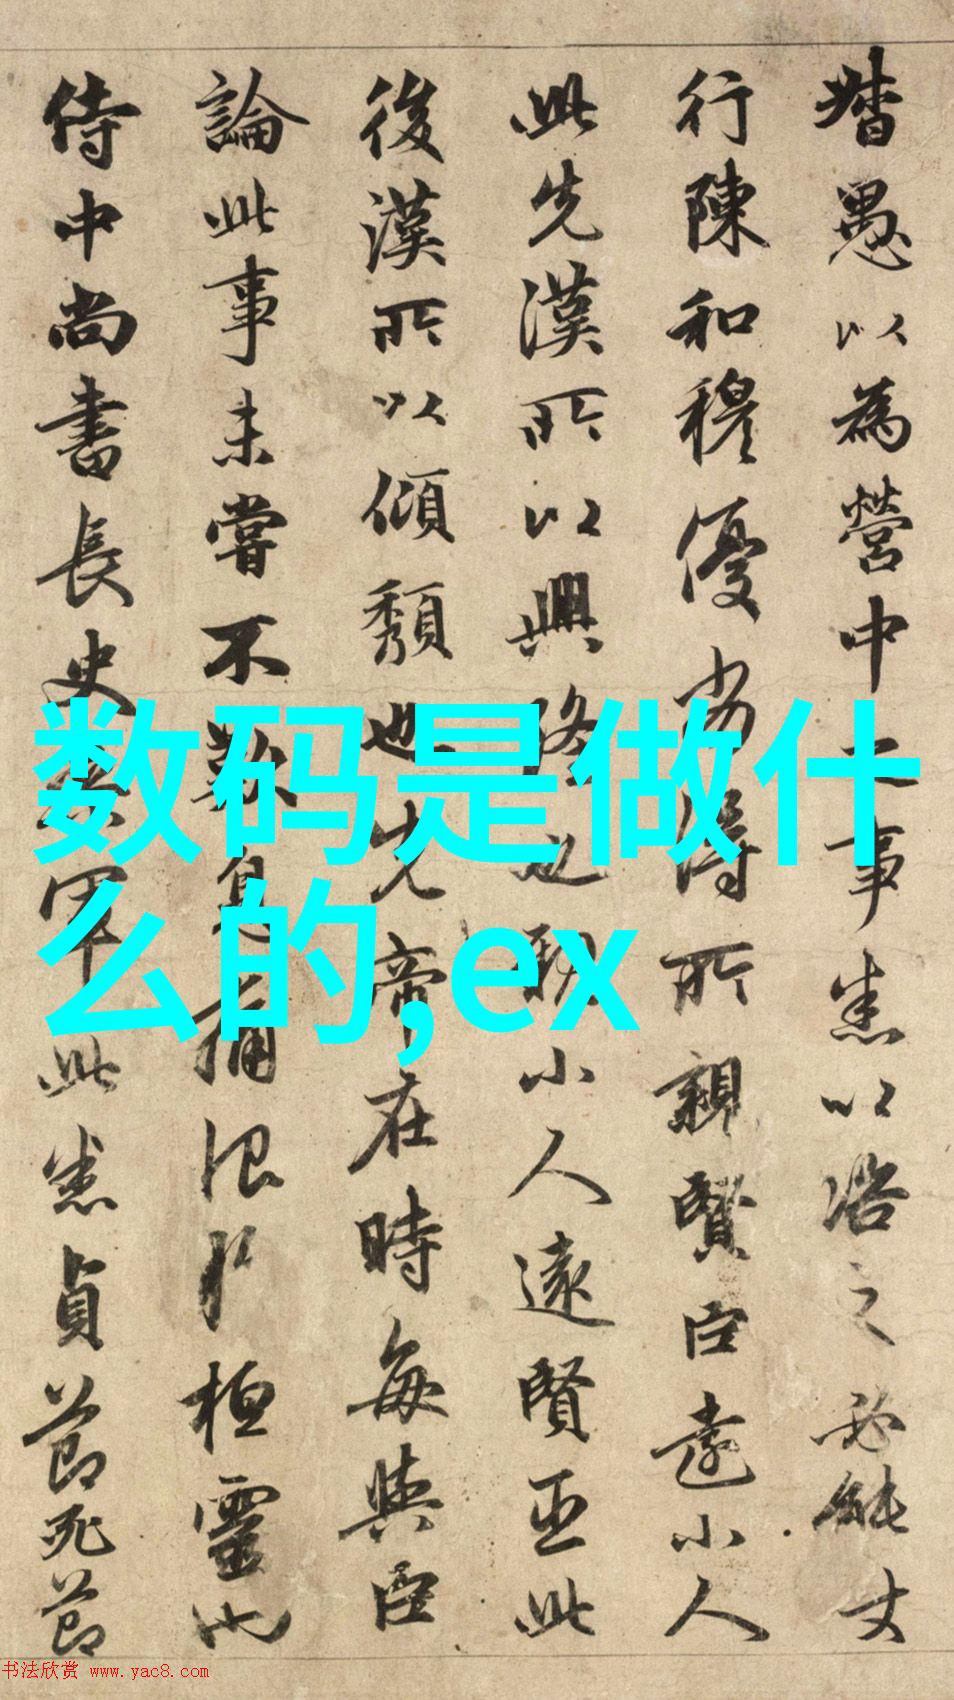 督愚以為營中之事悉以咨之必能
行陳和穆優劣得所親賢臣遠小人
此先漢所以興隆也親小人遠賢臣此
後漢所以傾頹也先帝在時每與臣
論此事未嘗不歎息痛恨於桓靈也
侍中尚書長史參軍此悉貞節死節
数码是做什
么的,ex
书法欣赏 www.yac8.com